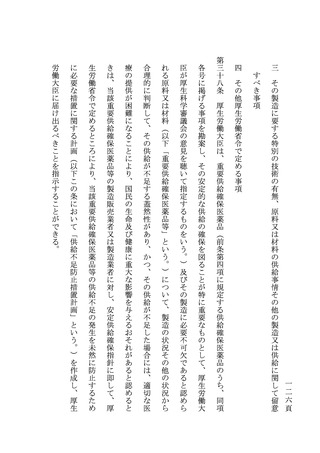 三　その製造に要する特別の技術の有無、原料又は材料の供給事情その他の製造又は供給に関して留意
すべき事項
四　その他厚生労働省令で定める事項
第三十八条　厚生労働大臣は、重要供給確保医薬品（前条第四項に規定する供給確保医薬品のうち、同項
各号に掲げる事項を勘案し、その安定的な供給の確保を図ることが特に重要なものとして、厚生労働大
臣が厚生科学審議会の意見を聴いて指定するものをいう。）及びその製造に必要不可欠であると認めら
れる原料又は材料（以下「重要供給確保医薬品等」という。）について、製造の状況その他の状況から
合理的に判断して、その供給が不足する蓋然性があり、かつ、その供給が不足した場合には、適切な医
療の提供が困難になることにより、国民の生命及び健康に重大な影響を与えるおそれがあると認めると
きは、当該重要供給確保医薬品等の製造販売業者又は製造業者に対し、安定供給確保指針に即して、厚
生労働省令で定めるところにより、当該重要供給確保医薬品等の供給不足の発生を未然に防止するため
に必要な措置に関する計画（以下この条において「供給不足防止措置計画」という。）を作成し、厚生
労働大臣に届け出るべきことを指示することができる。
一二六頁